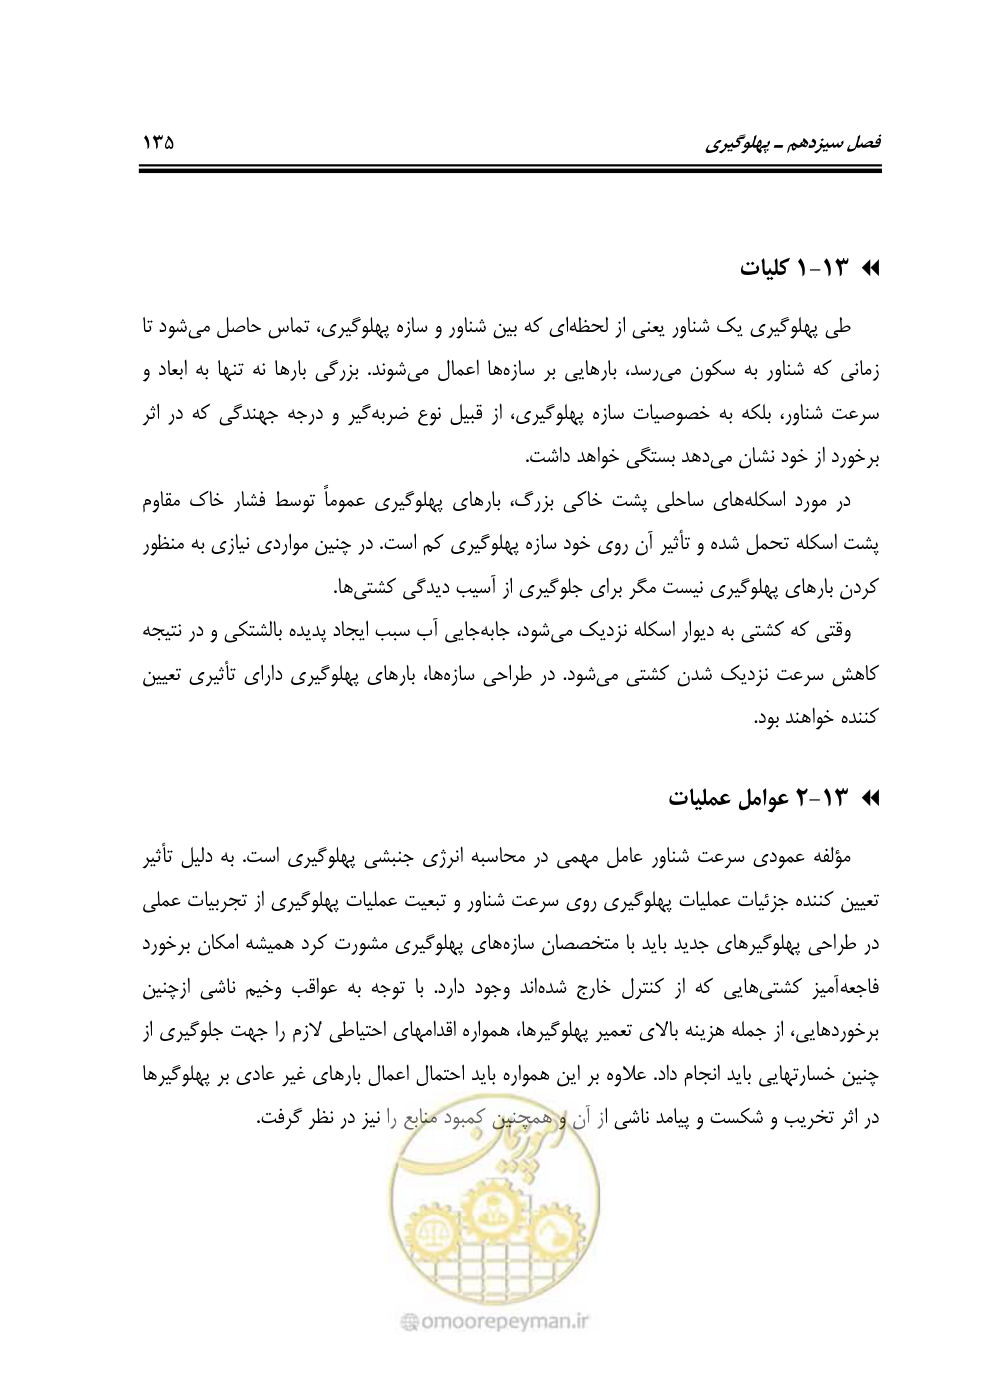 فصل سیزدهم ـ پهلوگیری ۱۳۵
۱۳-۱ کلیات
طی پهلوگیری یک شناور یعنی از لحظه‌ای که بین شناور و سازه پهلوگیری، تماس حاصل می‌شود تا
زمانی که شناور به سکون می‌رسد، بارهایی بر سازه‌ها اعمال می‌شوند. بزرگی بارها نه تنها به ابعاد و
سرعت شناور، بلکه به خصوصیات سازه پهلوگیری، از قبیل نوع ضربه‌گیر و درجه جهندگی که در اثر
برخورد از خود نشان می‌دهد بستگی خواهد داشت.
در مورد اسکله‌های ساحلی پشت خاکی بزرگ، بارهای پهلوگیری عموماً توسط فشار خاک مقاوم
پشت اسکله تحمل شده و تأثیر آن روی خود سازه پهلوگیری کم است. در چنین مواردی نیازی به منظور
کردن بارهای پهلوگیری نیست مگر برای جلوگیری از آسیب دیدگی کشتی‌ها.
وقتی که کشتی به دیوار اسکله نزدیک می‌شود، جابه‌جایی آب سبب ایجاد پدیده بالشتکی و در نتیجه
کاهش سرعت نزدیک شدن کشتی می‌شود. در طراحی سازه‌ها، بارهای پهلوگیری دارای تأثیری تعیین
کننده خواهند بود.
۱۳-۲ عوامل عملیات
مؤلفه عمودی سرعت شناور عامل مهمی در محاسبه انرژی جنبشی پهلوگیری است. به دلیل تأثیر
تعیین کننده جزئیات عملیات پهلوگیری روی سرعت شناور و تبعیت عملیات پهلوگیری از تجربیات عملی
در طراحی پهلوگیرهای جدید باید با متخصصان سازه‌های پهلوگیری مشورت کرد همیشه امکان برخورد
فاجعه‌آمیز کشتی‌هایی که از کنترل خارج شده‌اند وجود دارد. با توجه به عواقب وخیم ناشی ازچنین
برخوردهایی، از جمله هزینه بالای تعمیر پهلوگیرها، همواره اقدامهای احتیاطی لازم را جهت جلوگیری از
چنین خسارتهایی باید انجام داد. علاوه بر این همواره باید احتمال اعمال بارهای غیر عادی بر پهلوگیرها
در اثر تخریب و شکست و پیامد ناشی از آن و همچنین کمبود منابع را نیز در نظر گرفت.
امور پیمان
@omoorepeyman.ir